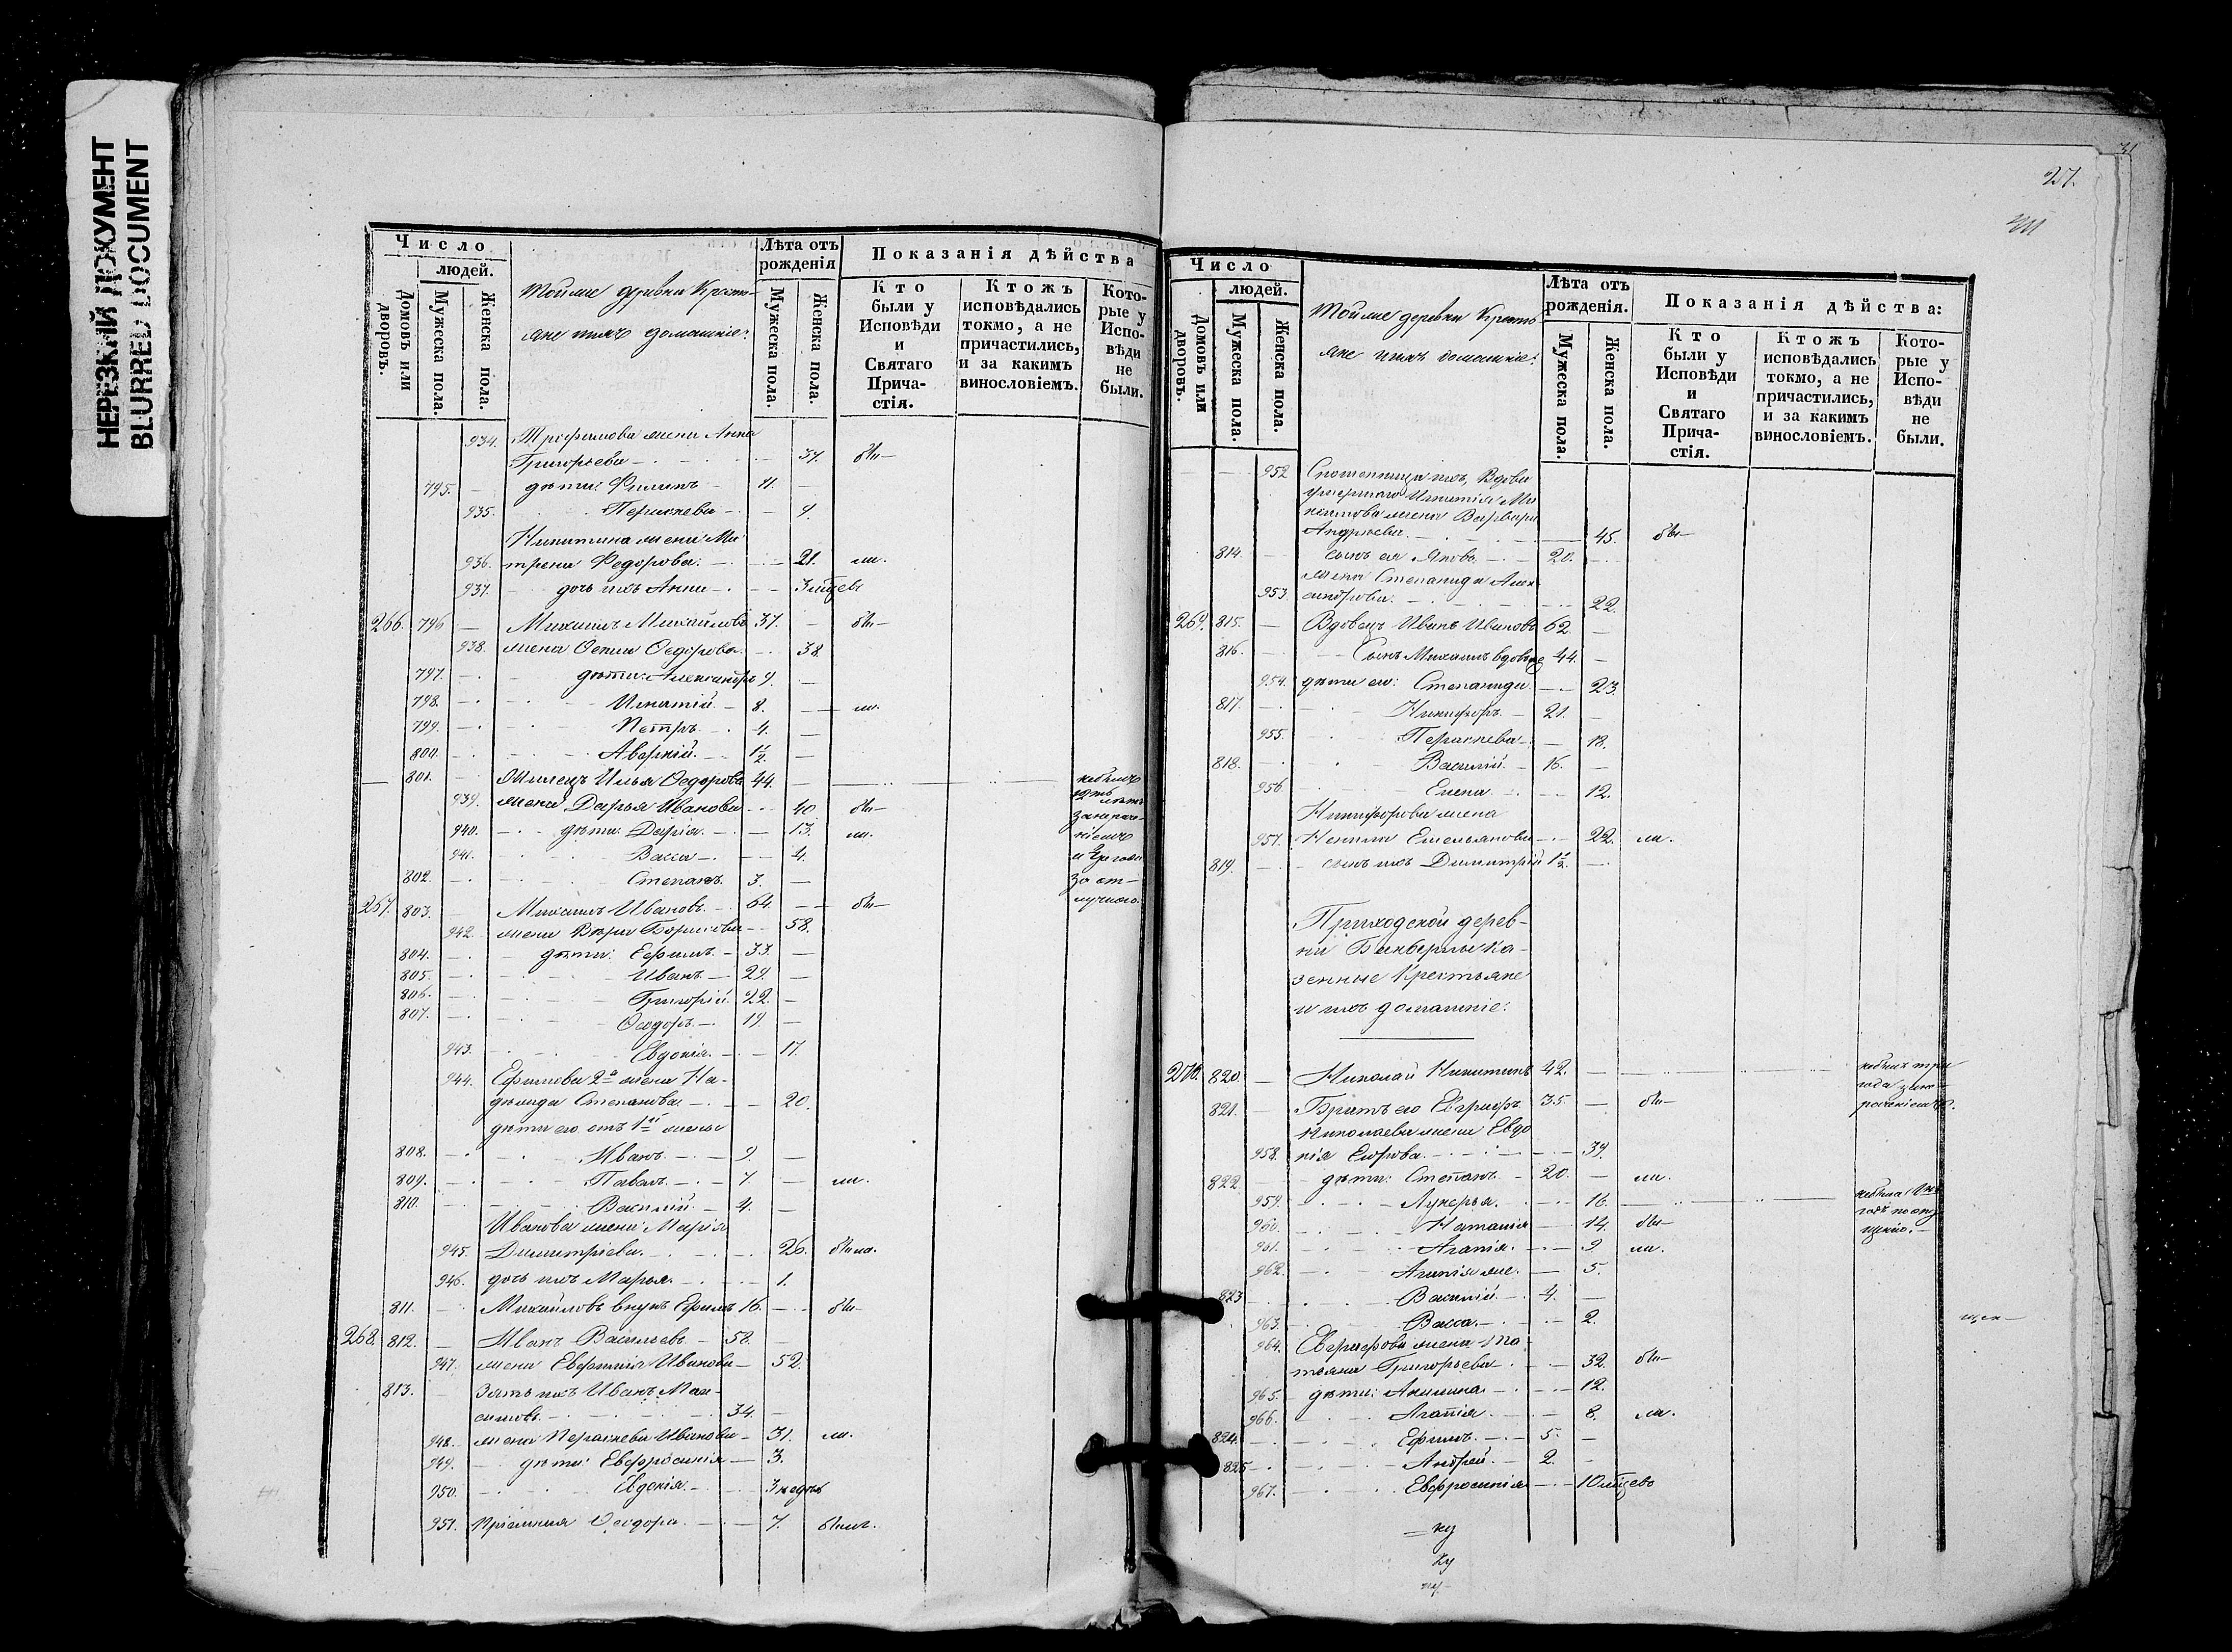 НЕРЕЗКИЙ ДОКУМЕНТ
BLURRED DOCUMENT
Число
людей.
Домовъ или дворовъ.
Мужеска пола.
Женска пола.
Тойже деревни Кресть-
яне и ихъ домашніе:
Лѣта отъ рожденія
Мужеска пола.
Женска пола.
Показанія дѣйства
Кто были у Исповѣди и Святаго Прича-стія.
Ктожъ исповѣдались токмо, а не причастились, и за какимъ винословіемъ.
Кото-рые у Испо-вѣди не были.
934. Трофимова жена Анна
Григорьева 37. бы-
795. дѣти: Филипъ 11.
935. Параскева 4.
Никитина жена Ма
936. трена Федорова: 21. ли.
937. дочь ихъ Анна 3 мѣсец
266. 796 Михаилъ Михайловъ 37. бы-
938. жена Ѳекла Ѳедорова 38.
797. дѣти: Александръ 9.
798. Игнатій 8. ли.
799. Петръ 4.
800. Аверкій. 1 1/2
801. Илья Ѳедоровъ 44.
939. жена Дарья Иванова 40. бы-
940. дѣти: Дарія. 13. ли.
941. Васса 4.
802. Степанъ. 3.
267. 803. Михаилъ Ивановъ. 64. бы-
942. жена Вѣра Борисова 58.
804. дѣти: Ефимъ. 33.
805. Иванъ 29.
806. Григорій. 22.
807. Ѳеодоръ. 19.
943. Евдокія. 17.
944. Ефимова 2я жена На-
дежда Степанова 20.
дѣти его отъ 1й жены
808. Иванъ 9.
809. Павелъ 7. ли.
810. Василій 4.
Иванова жена Марія
945. Димитріева. 26. была.
946. дочь ихъ Марья. 1.
811. Михайловъ внукъ Ефимъ 16. бы-
268. 812. Иванъ Васильевъ 58.
947. жена Евфимія Иванова 52.
813. Зять ихъ Иванъ Мак-
симовъ 34.
948. жена Параскева Иванова 31. ли.
949. дѣти: Евфросинія 3.
950. Евдокія. 3 недѣль
951. Ѳеодора. 7. былъ.
27.
Число
людей.
Домовъ или дворовъ.
Мужеска пола.
Женска пола.
Тойже деревни Кресть
яне и ихъ домашніе:
Лѣта отъ рожденія.
Мужеска пола.
Женска пола.
Показанія дѣйства:
Кто были у Исповѣди и Святаго Прича-стія.
Ктожъ исповѣдались токмо, а не причастились, и за какимъ винословіемъ.
Кото-рые у Испо-вѣди не были.
952 ихъ, Вдова
умершаго Игнатія
жена Варвара
Андреева. 45. бы-
814. сынъ ея Яковъ 20.
жена Степанида Алек
953. сандрова. 22.
269. 815. Вдовецъ Иванъ Ивановъ 62.
816. Сынъ Михаилъ вдовецъ 44.
954. дѣти его: Степанида. 23.
817. Никифоръ. 21.
955. Параскева 18.
818. Василій. 16.
956 Елена 12.
Никифорова жена
957. Емельянова 22. ли.
819. сынъ ихъ Димитрій 1 1/2
Приходской дерев-
ни Ка-
зенные Крестьяне
и ихъ домашніе:
270. 820. Николай Никитинъ 42.
821. Братъ его Евграфъ 35. бы-
Николаева жена Евдо
958. кія Егорова. 39.
822 дѣти: Степанъ. 20. ли.
959. Лукерья. 16.
960. Наталія 14. бы-
961. Агапія. 9. ли.
962. Агапія же. 5.
823 Василій 4.
963. Васса. 2.
964. Евграфова жена Та
тьяна Григорьева 32. бы-
965. дѣти: Акилина. 12.
966. Агапія. 8. ли.
824. Ефимъ. 5.
825 Андрей. 2.
967. Евфросинія 10 мѣсецево